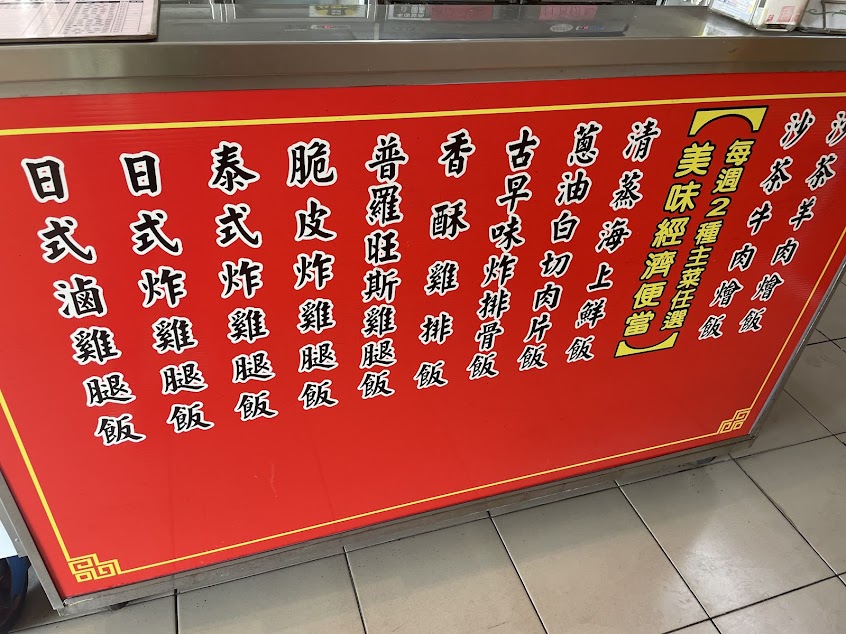 沙茶羊肉燴飯
沙茶牛肉燴飯
【每週2種主菜任選
美味經濟便當】
清蒸海上鮮飯
蔥油白切肉片飯
古早味炸排骨飯
香酥雞排飯
普羅旺斯雞腿飯
脆皮炸雞腿飯
泰式炸雞腿飯
日式炸雞腿飯
日式滷雞腿飯